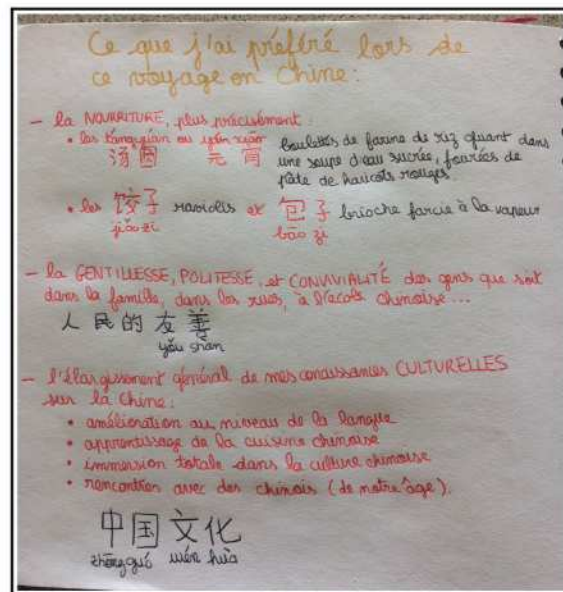 Ce que j'ai préféré lors de
ce voyage en Chine:
- la NOURRITURE, plus précisément:
• les tāngyúan ou yúan xiāo boulettes de farine de riz
汤圆 元宵 une soupe d'eau sucrée, fourrées de
pâte de haricots rouges
• les 饺子 raviolis et 包子 brioche farcie à la vapeur
jiǎo zi bāo zi
- la GENTILLESSE, POLITESSE, et CONVIVIALITÉ des gens que soit
dans la famille, dans les rues, à l'école chinoise...
人民的友善
yǒu shàn
- l'élargissement général de mes conaissances CULTURELLES
sur la Chine:
• amélioration au niveau de la langue
• apprentissage de la cuisine chinoise
• immersion totale dans la culture chinoise
• rencontres avec des chinois (de notre âge).
中国文化
zhōng guó wén huà